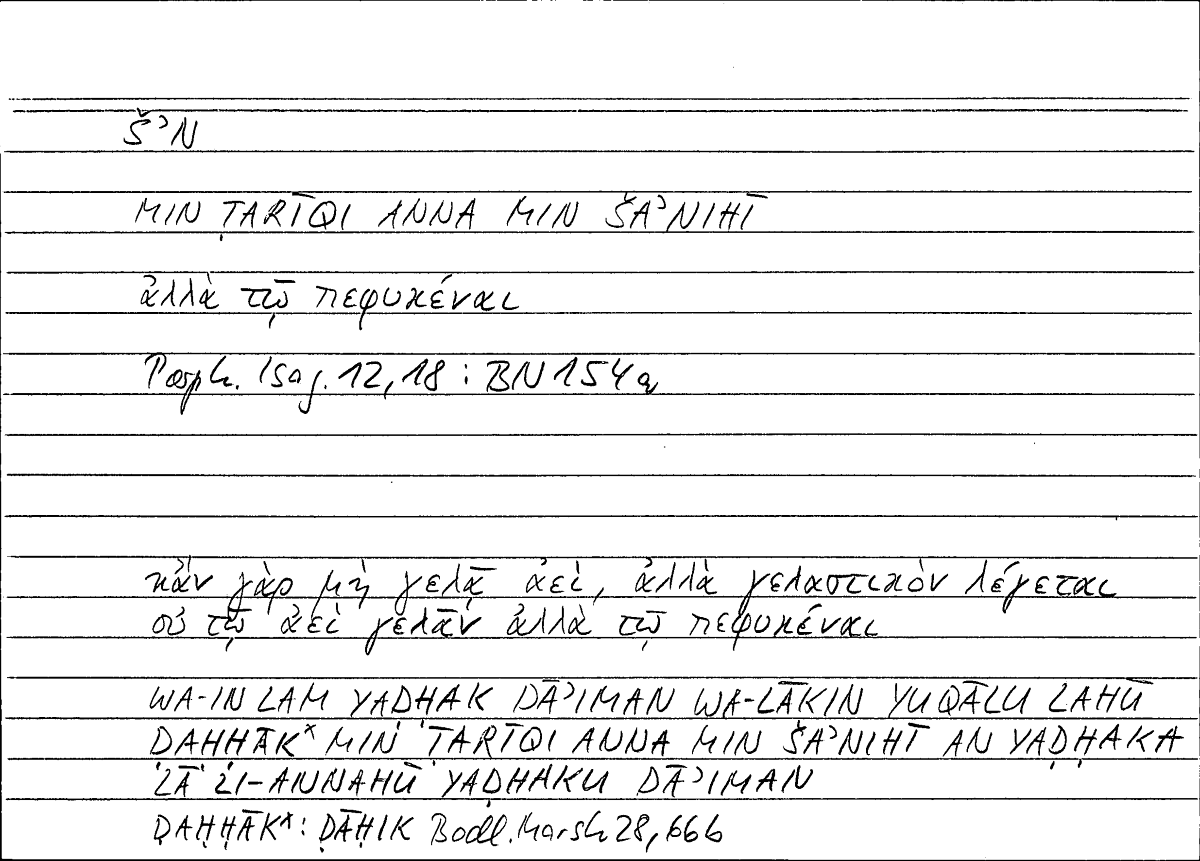 ŠʾN
MIN ṬARĪQI ANNA MIN ŠAʾNIHĪ
ἀλλὰ τῷ πεφυκέναι
Porph. Isag. 12,18 : BN 154a
κἂν γὰρ μὴ γελᾷ ἀεί, ἀλλὰ γελαστικὸν λέγεται
οὐ τῷ ἀεὶ γελᾶν ἀλλὰ τῷ πεφυκέναι
WA-IN LAM YAḌḤAK DĀʾIMAN WA-LĀKIN YUQĀLU LAHŪ
ḌAḤḤĀKˣ MIN ṬARĪQI ANNA MIN ŠAʾNIHĪ AN YAḌḤAKA
LĀ LI-ANNAHŪ YAḌḤAKU DĀʾIMAN
ḌAḤḤĀKˣ: ḌĀḤIK Bodl. Marsh 28, 66b